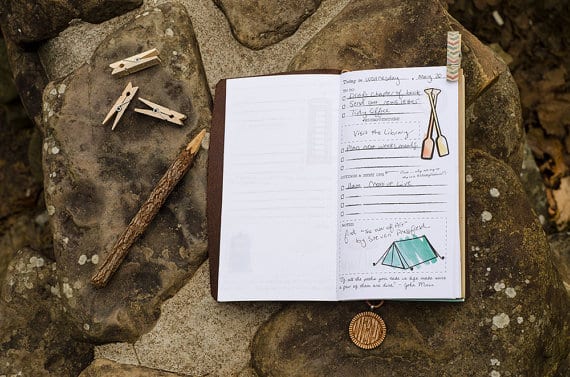 Today is Wednesday, May 20
TO DO
Draft chapter of book
Send out newsletter
Tidy Office
Visit the Library
Plan next week's meals
Have Creative Live
NOTES
"The War of Art"
by Steven Pressfield
"Of all the paths you take in life make sure
a few of them are dirt" - John Muir